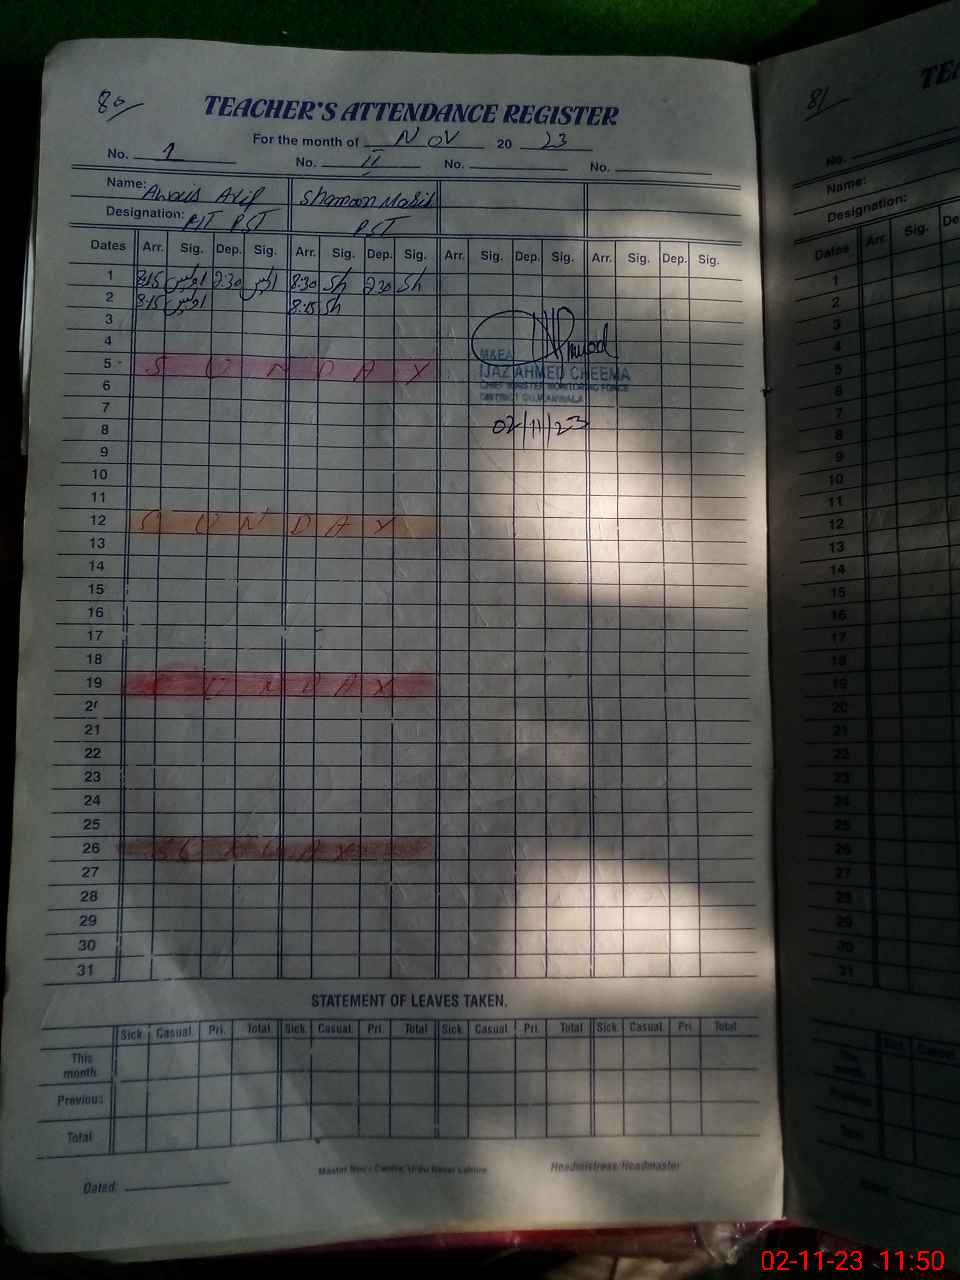 80
TEACHER'S ATTENDANCE REGISTER
For the month of NOV 20 23
No. 1 No. II No. No.
Name: Awais Arif Shamoon Masih
Designation: PST PST
Dates Arr. Sig. Dep. Sig. Arr. Sig. Dep. Sig. Arr. Sig. Dep. Sig. Arr. Sig. Dep. Sig.
1 8:15 اویس 2:30 اویس 8:30 Sh 2:30 Sh
2 8:15 اویس 8:15 Sh
3
4
5 SUNDAY
6
7
8
9
10
11
12 SUNDAY
13
14
15
16
17
18
19 SUNDAY
20
21
22
23
24
25
26 SUNDAY
27
28
29
30
31
M&EA
IJAZ AHMED CHEEMA
CHIEF MINISTER MONITORING FORCE
DISTRICT GUJRANWALA
02/11/23
STATEMENT OF LEAVES TAKEN.
Sick. Casual. Pri. Total Sick. Casual. Pri. Total Sick. Casual. Pri. Total Sick. Casual. Pri. Total
This month
Previous
Total
Dated:
Urdu Bazar Lahore
Headmistress/Headmaster
81
TEA
No.
Name:
Designation:
Dates Arr. Sig. De
1
2
3
4
5
6
7
8
9
10
11
12
13
14
15
16
17
18
19
20
21
22
23
24
25
26
27
28
29
30
31
02-11-23 11:50